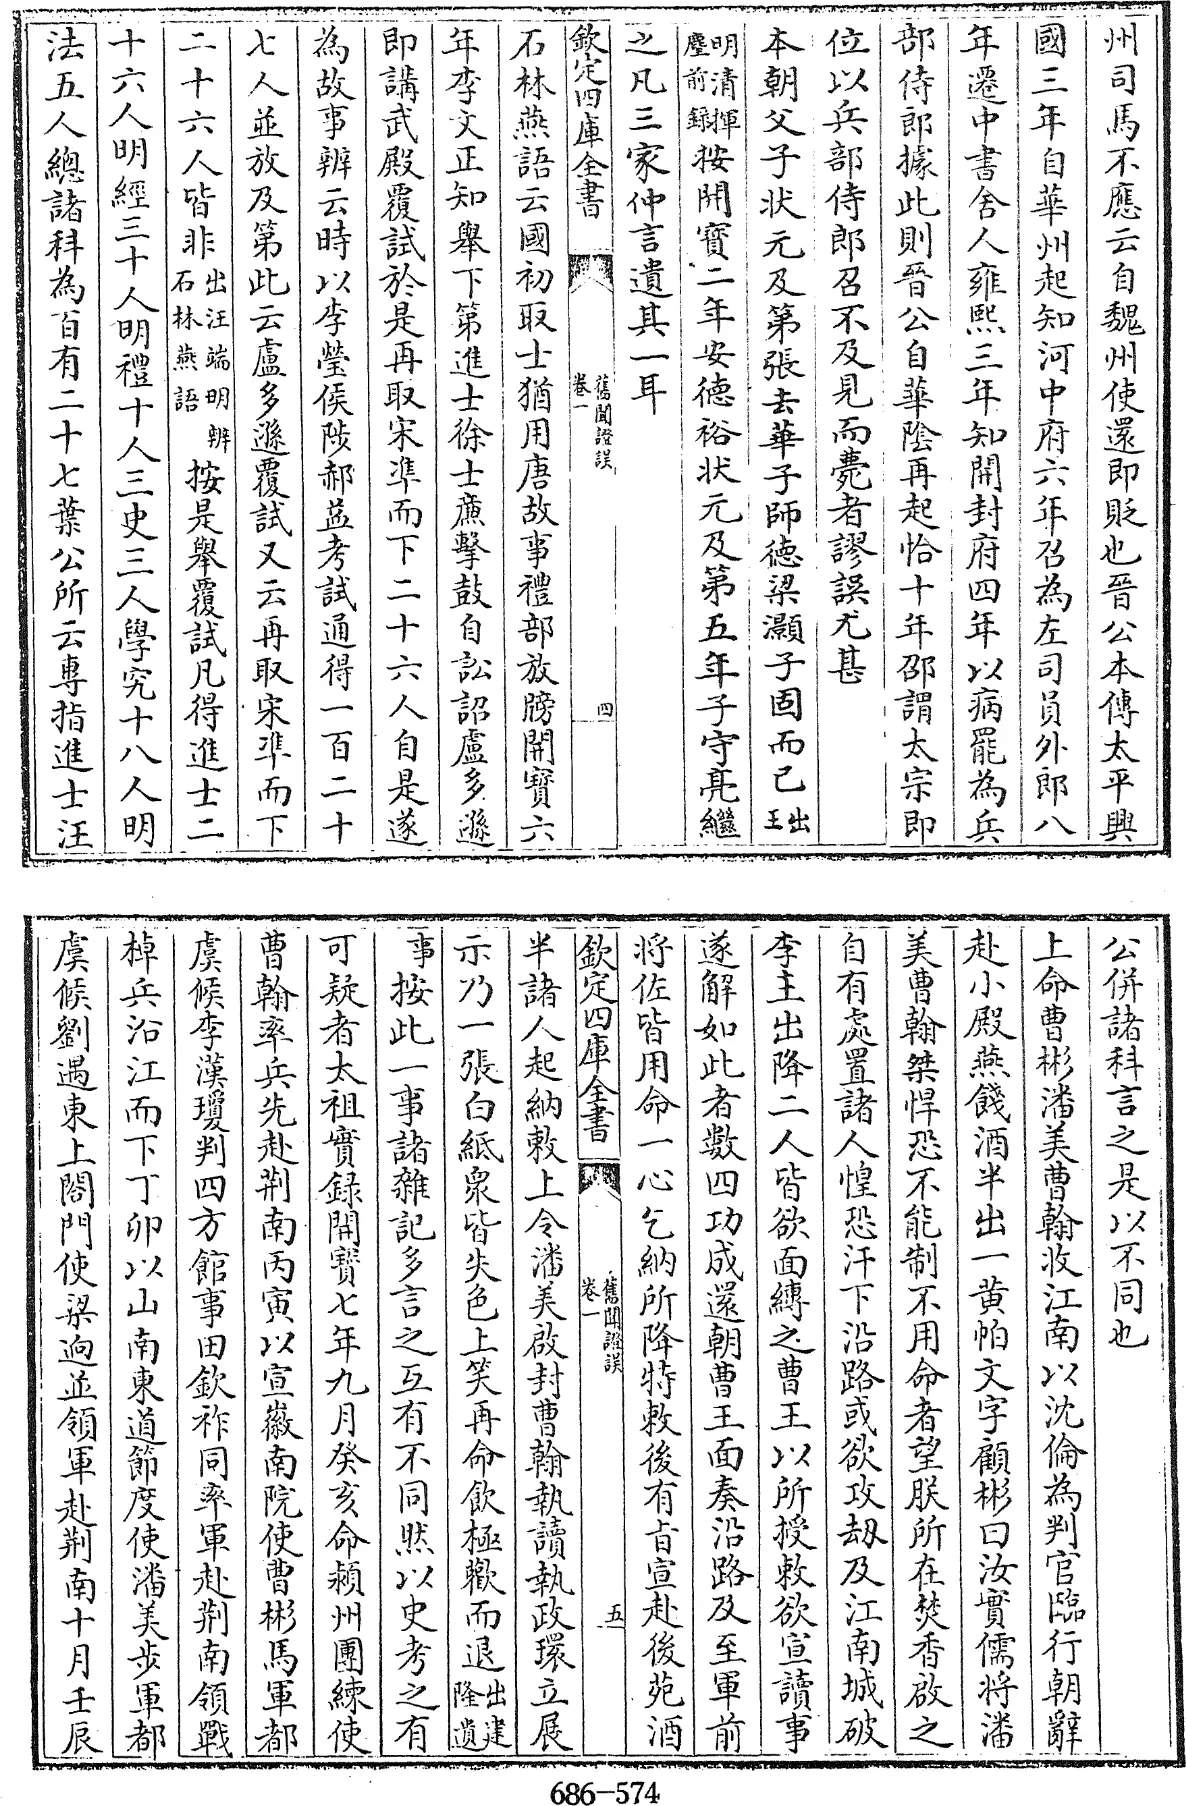 州司馬不應云自魏州使還即貶也晉公本傳太平興
國三年自華州起知河中府六年召為左司員外郎八
年遷中書舍人雍熙三年知開封府四年以病罷為兵
部侍郎據此則晉公自華陰再起恰十年邵謂太宗即
位以兵部侍郎召不及見而薨者謬誤尤甚
本朝父子狀元及第張去華子師德梁灝子固而已出王
明清揮麈前錄按開寶二年安德裕狀元及第五年子守亮繼
之凡三家仲言遺其一耳
欽定四庫全書 舊聞證誤 卷一 四
石林燕語云國初取士猶用唐故事禮部放牓開寶六
年李文正知舉下第進士徐士廉擊鼓自訟詔盧多遜
即講武殿覆試於是再取宋準而下二十六人自是遂
為故事辨云時以李瑩侯陟郝益考試通得一百二十
七人並放及第此云盧多遜覆試又云再取宋準而下
二十六人皆非出汪端明辨石林燕語按是舉覆試凡得進士二
十六人明經三十人明禮十人三史三人學究十八人明
法五人總諸科為百有二十七葉公所云專指進士汪
公併諸科言之是以不同也
上命曹彬潘美曹翰收江南以沈倫為判官臨行朝辭
赴小殿燕餞酒半出一黃帕文字顧彬曰汝實儒將潘
美曹翰桀悍恐不能制不用命者望朕所在焚香啟之
自有處置諸人惶恐汗下沿路或欲攻刼及江南城破
李主出降二人皆欲面縛之曹王以所授敕欲宣讀事
遂解如此者數四功成還朝曹王面奏沿路及至軍前
將佐皆用命一心乞納所降特敕後有旨宣赴後苑酒
欽定四庫全書 舊聞證誤 卷一 五
半諸人起納敕上令潘美啟封曹翰執讀執政環立展
示乃一張白紙眾皆失色上笑再命飲極歡而退出建隆遺
事按此一事諸雜記多言之互有不同然以史考之有
可疑者太祖實錄開寶七年九月癸亥命潁州團練使
曹翰率兵先赴荊南丙寅以宣徽南院使曹彬馬軍都
虞候李漢瓊判四方館事田欽祚同率軍赴荊南領戰
棹兵沿江而下丁卯以山南東道節度使潘美步軍都
虞候劉遇東上閤門使梁迥並領軍赴荊南十月壬辰
686-574